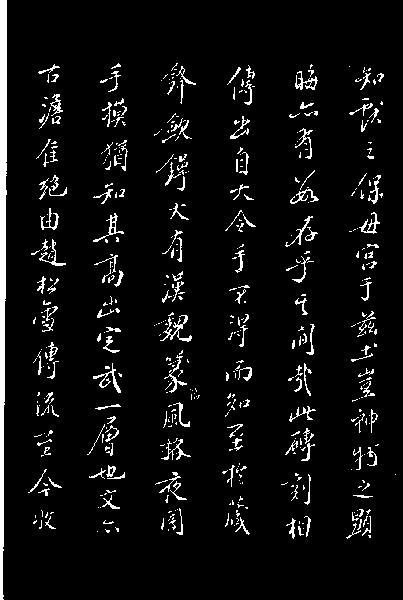 知獻之保母宮于茲土豈神物之顯
晦亦有數存乎其間哉此磚刻相
傳出自大令手不得而知至於藏
鋒歛鍔大有漢魏篆風挍夜闇
手摸猶知其高出定武一層也文六
古澹佳絕由趙松雪傳流至今收